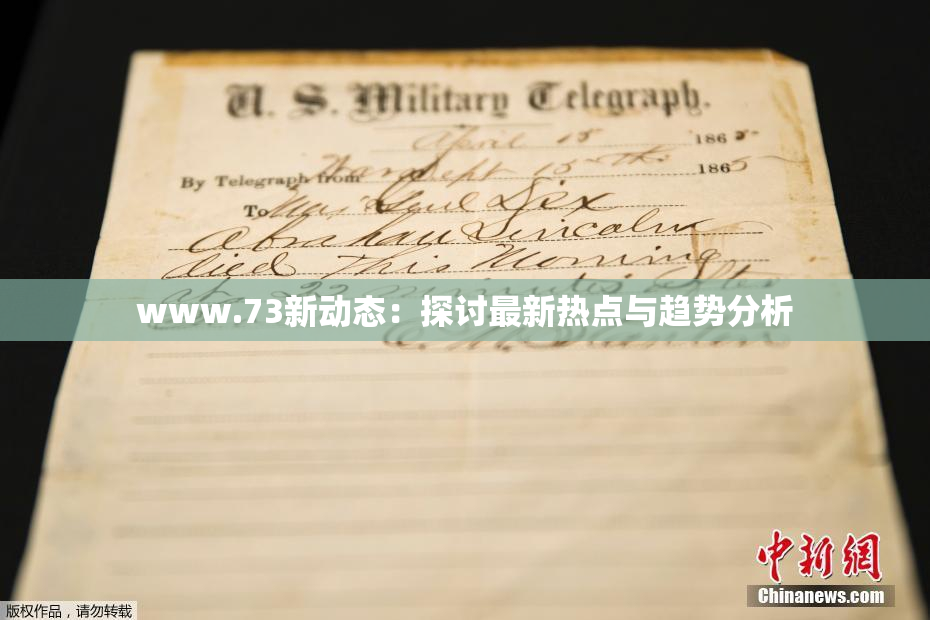 U. S. Military Telegraph.
April 15 1865
By Telegraph from War Dept 15th 1865
To Maj Genl Dix
Abraham Lincoln
died This Morning
at 22 minutes after
www.73新动态：探讨最新热点与趋势分析
E. M. Stanton
中新网
Chinanews.com
版权作品，请勿转载